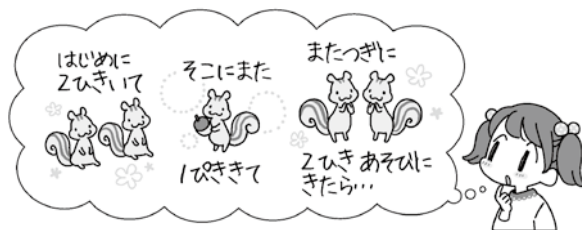 はじめに
2ひきいて
そこにまた
1ぴききて
またつぎに
2ひき あそびに
きたら…